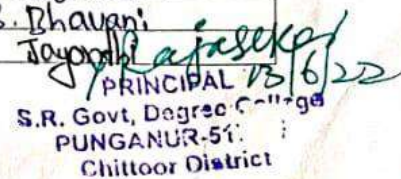 S. Bhavani
Jayanthi Rajasekar
PRINCIPAL 13/6/22
S.R. Govt, Degree College
PUNGANUR-51
Chittoor District